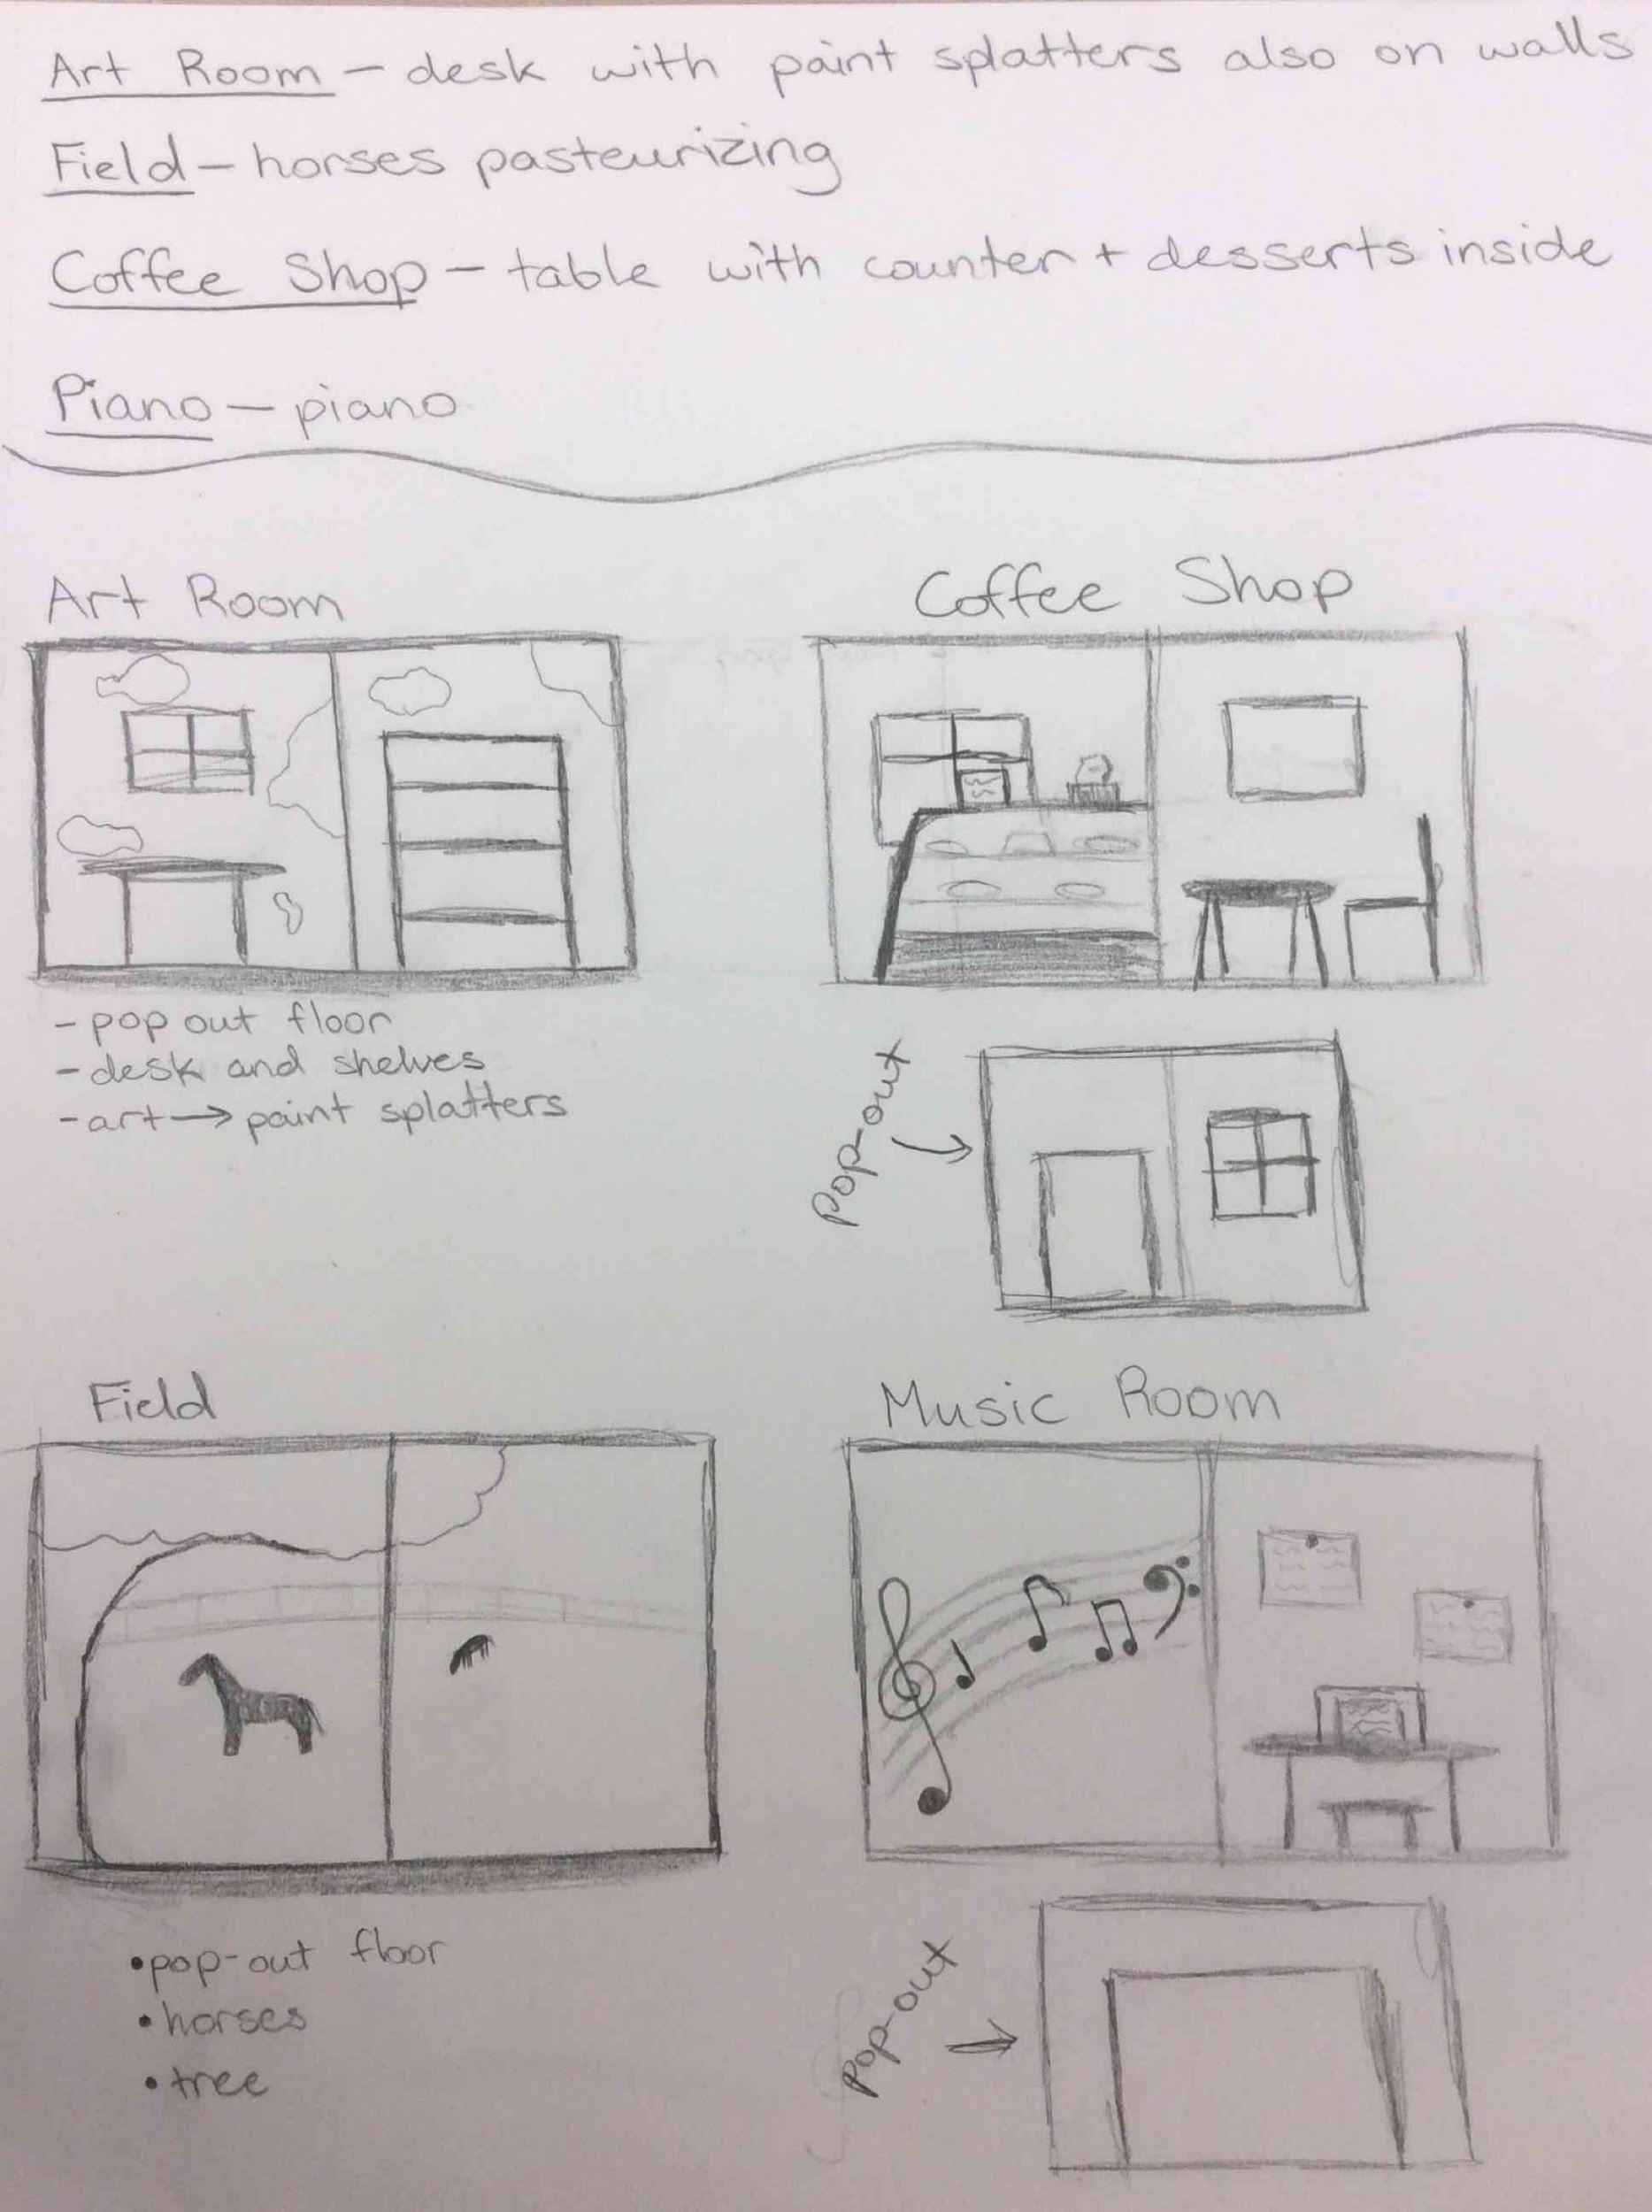 Art Room - desk with paint splatters also on walls
Field - horses pasteurizing
Coffee Shop - table with counter + desserts inside
Piano - piano
Art Room
- pop out floor
- desk and shelves
- art → paint splatters
Coffee Shop
Pop-out
Field
• pop-out floor
• horses
• tree
Music Room
Pop-out